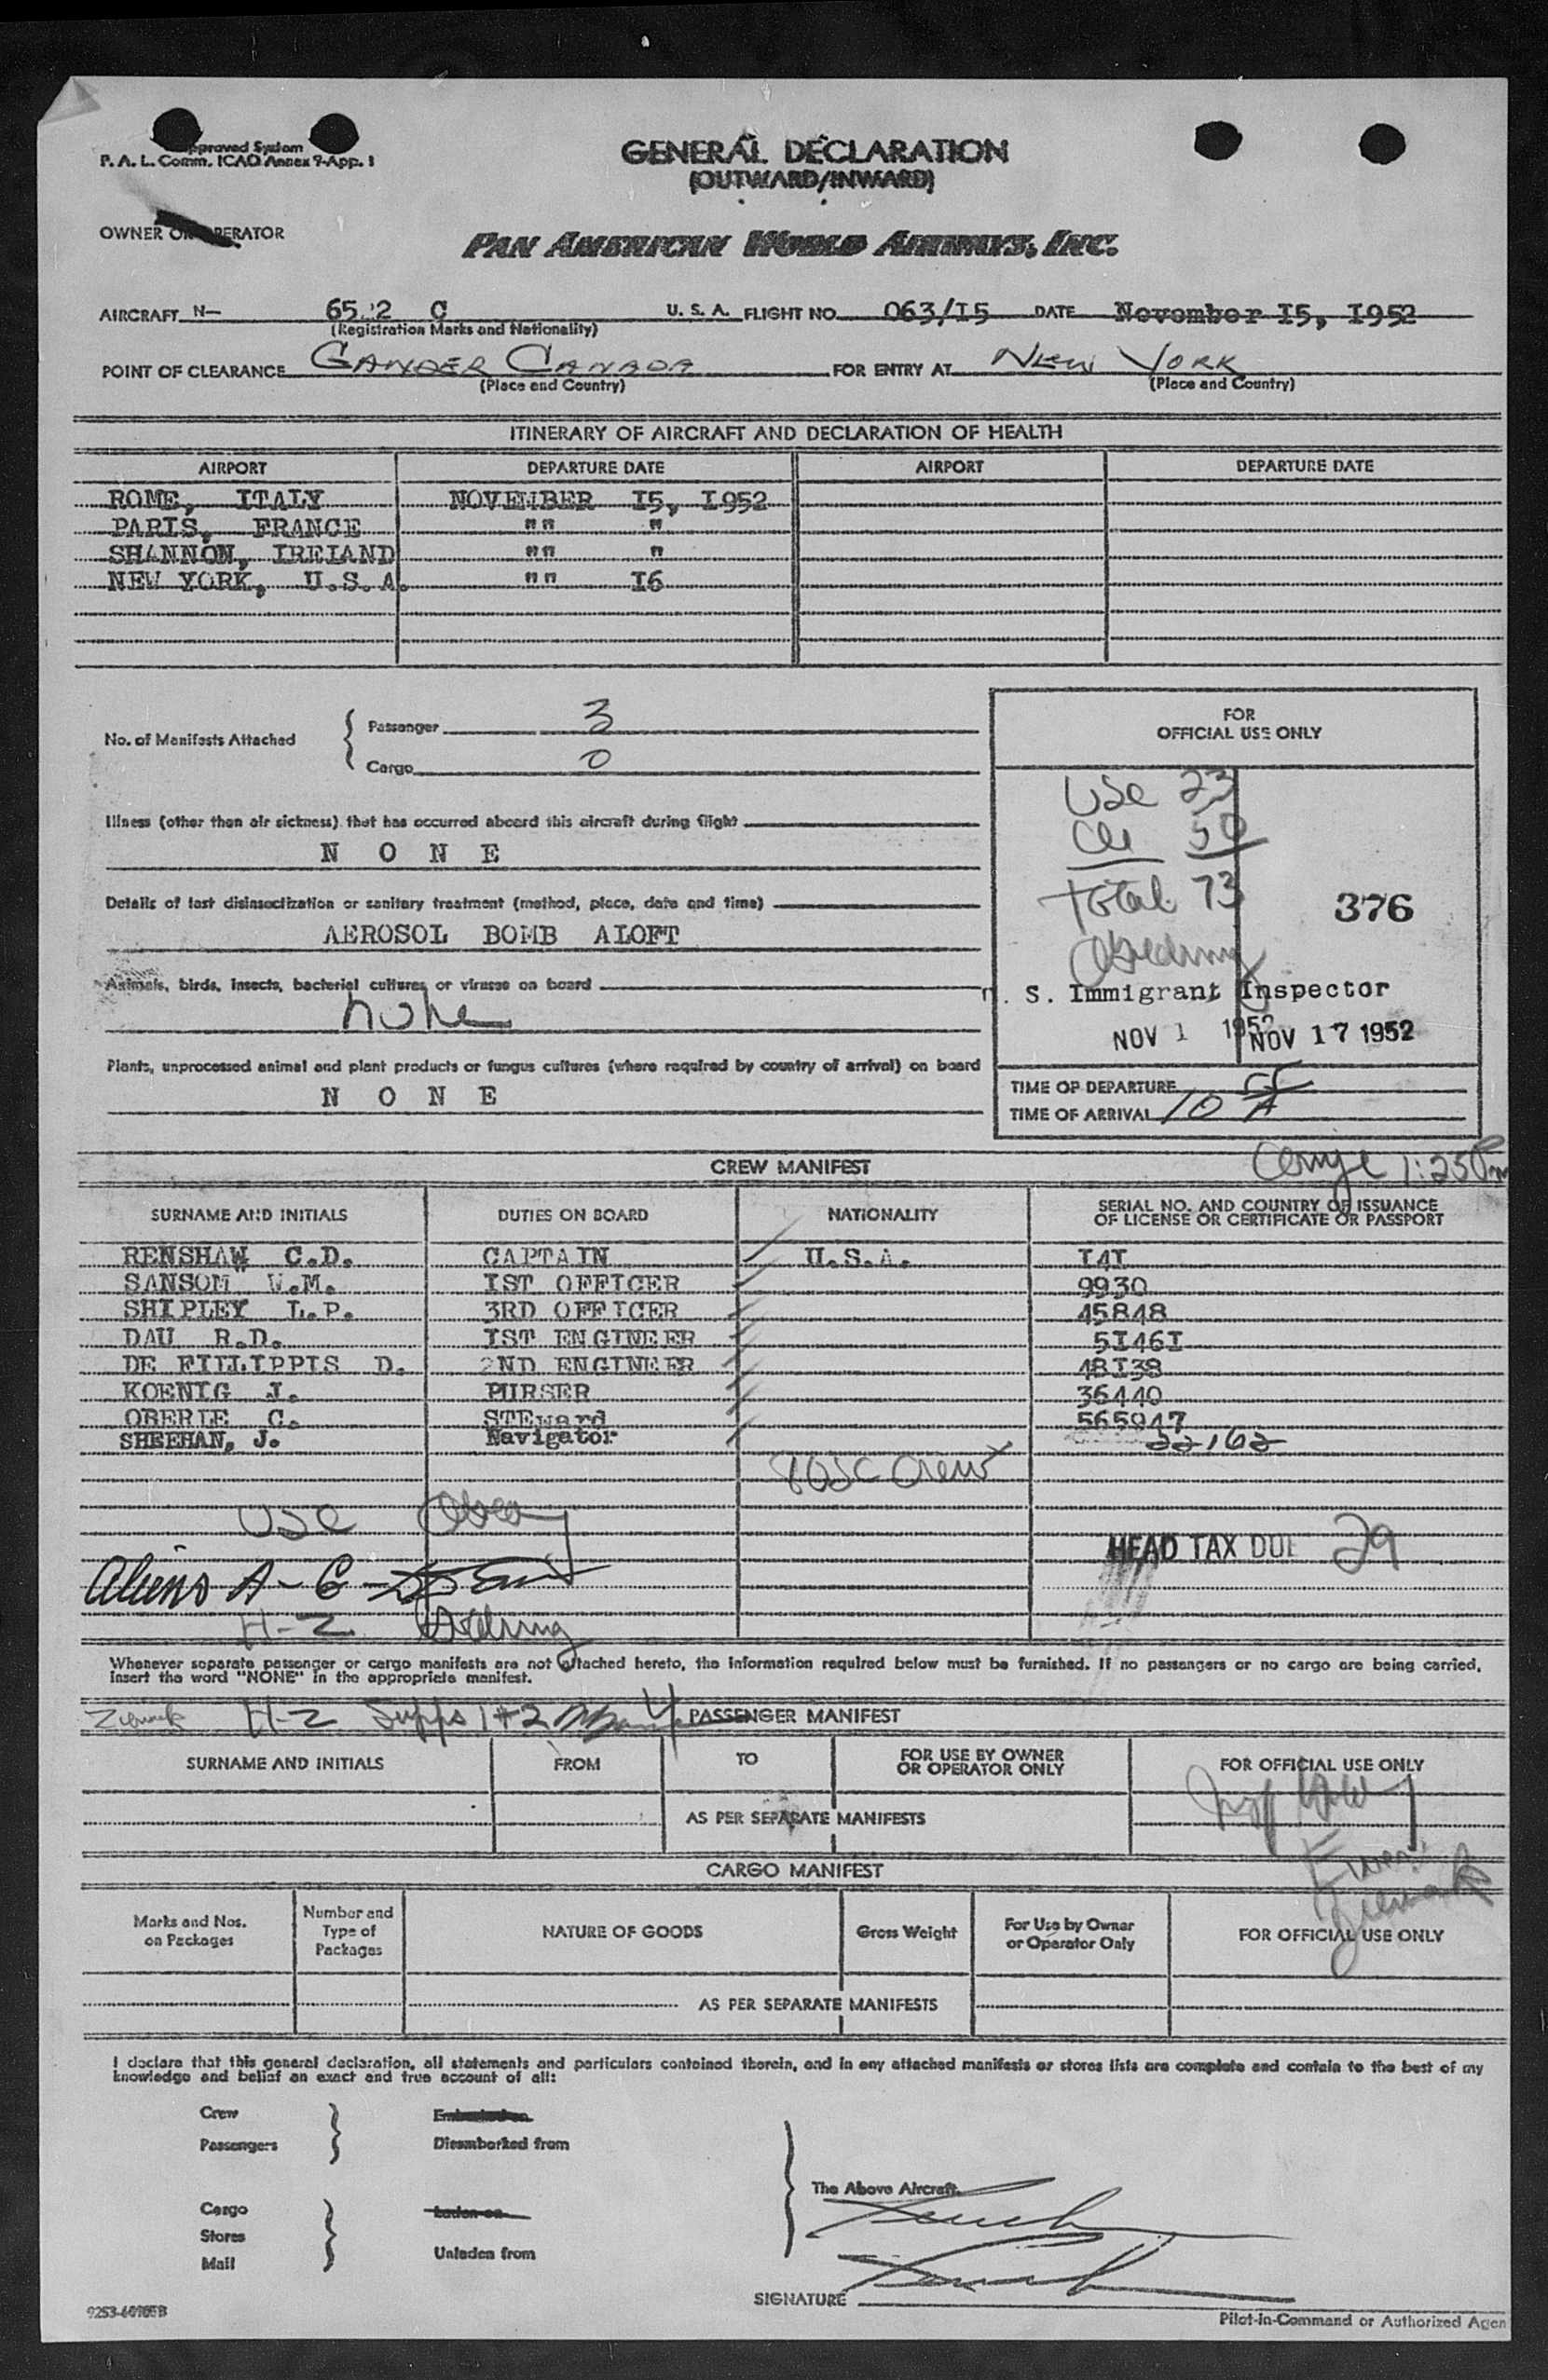 pproved System
P. A. L. Comm. ICAO Annex 9-App. 1
GENERAL DECLARATION
(OUTWARD/INWARD)
OWNER OR OPERATOR
PAN AMERICAN WORLD AIRWAYS, INC.
AIRCRAFT N- C U. S. A. FLIGHT NO. 063/I5 DATE November I5, I952
(Registration Marks and Nationality)
POINT OF CLEARANCE GANDER CANADA FOR ENTRY AT NEW YORK
(Place and Country) (Place and Country)
ITINERARY OF AIRCRAFT AND DECLARATION OF HEALTH
AIRPORT DEPARTURE DATE AIRPORT DEPARTURE DATE
ROME, ITALY NOVEMBER I5, I952
PARIS, FRANCE "" "
SHANNON, IRELAND "" "
NEW YORK, U.S.A. "" I6
No. of Manifests Attached
Passenger 3
Cargo 0
Illness (other than air sickness) that has occurred aboard this aircraft during flight
N O N E
Details of last disinsectization or sanitary treatment (method, place, date and time)
AEROSOL BOMB ALOFT
Animals, birds, insects, bacterial cultures or viruses on board
none
Plants, unprocessed animal and plant products or fungus cultures (where required by country of arrival) on board
N O N E
FOR
OFFICIAL USE ONLY
USC 23
50
Total 73
376
S. Immigrant Inspector
NOV 1 1952 NOV 17 1952
TIME OF DEPARTURE
TIME OF ARRIVAL 10 A
1:25 Pm
CREW MANIFEST
SURNAME AND INITIALS DUTIES ON BOARD NATIONALITY SERIAL NO. AND COUNTRY OF ISSUANCE
OF LICENSE OR CERTIFICATE OR PASSPORT
RENSHAW C.D. CAPTAIN U.S.A. I4I
SANSOM W.M. IST OFFICER 9930
SHIPLEY L.P. 3RD OFFICER 45848
DAU R.D. IST ENGINEER 5I46I
DE FILLIPPIS D. 2ND ENGINEER 48I38
KOENIG J. PURSER 36440
OBERLE C. STEward 565947
SHEEHAN, J. Navigator 22162
8 USC Crew
USC
HEAD TAX DUE 29
Aliens A - G
H-Z
Whenever separate passenger or cargo manifests are not attached hereto, the information required below must be furnished. If no passengers or no cargo are being carried,
insert the word "NONE" in the appropriate manifest.
H-Z Supps 1+2
PASSENGER MANIFEST
SURNAME AND INITIALS FROM TO FOR USE BY OWNER
OR OPERATOR ONLY FOR OFFICIAL USE ONLY
AS PER SEPARATE MANIFESTS
CARGO MANIFEST
Marks and Nos.
on Packages Number and
Type of
Packages NATURE OF GOODS Gross Weight For Use by Owner
or Operator Only FOR OFFICIAL USE ONLY
AS PER SEPARATE MANIFESTS
I declare that this general declaration, all statements and particulars contained therein, and in any attached manifests or stores lists are complete and contain to the best of my
knowledge and belief an exact and true account of all:
Crew
Passengers
Embarked on
Disembarked from
Cargo
Stores
Mail
Laden on
Unladen from
The Above Aircraft.
SIGNATURE
Pilot-in-Command or Authorized Agen